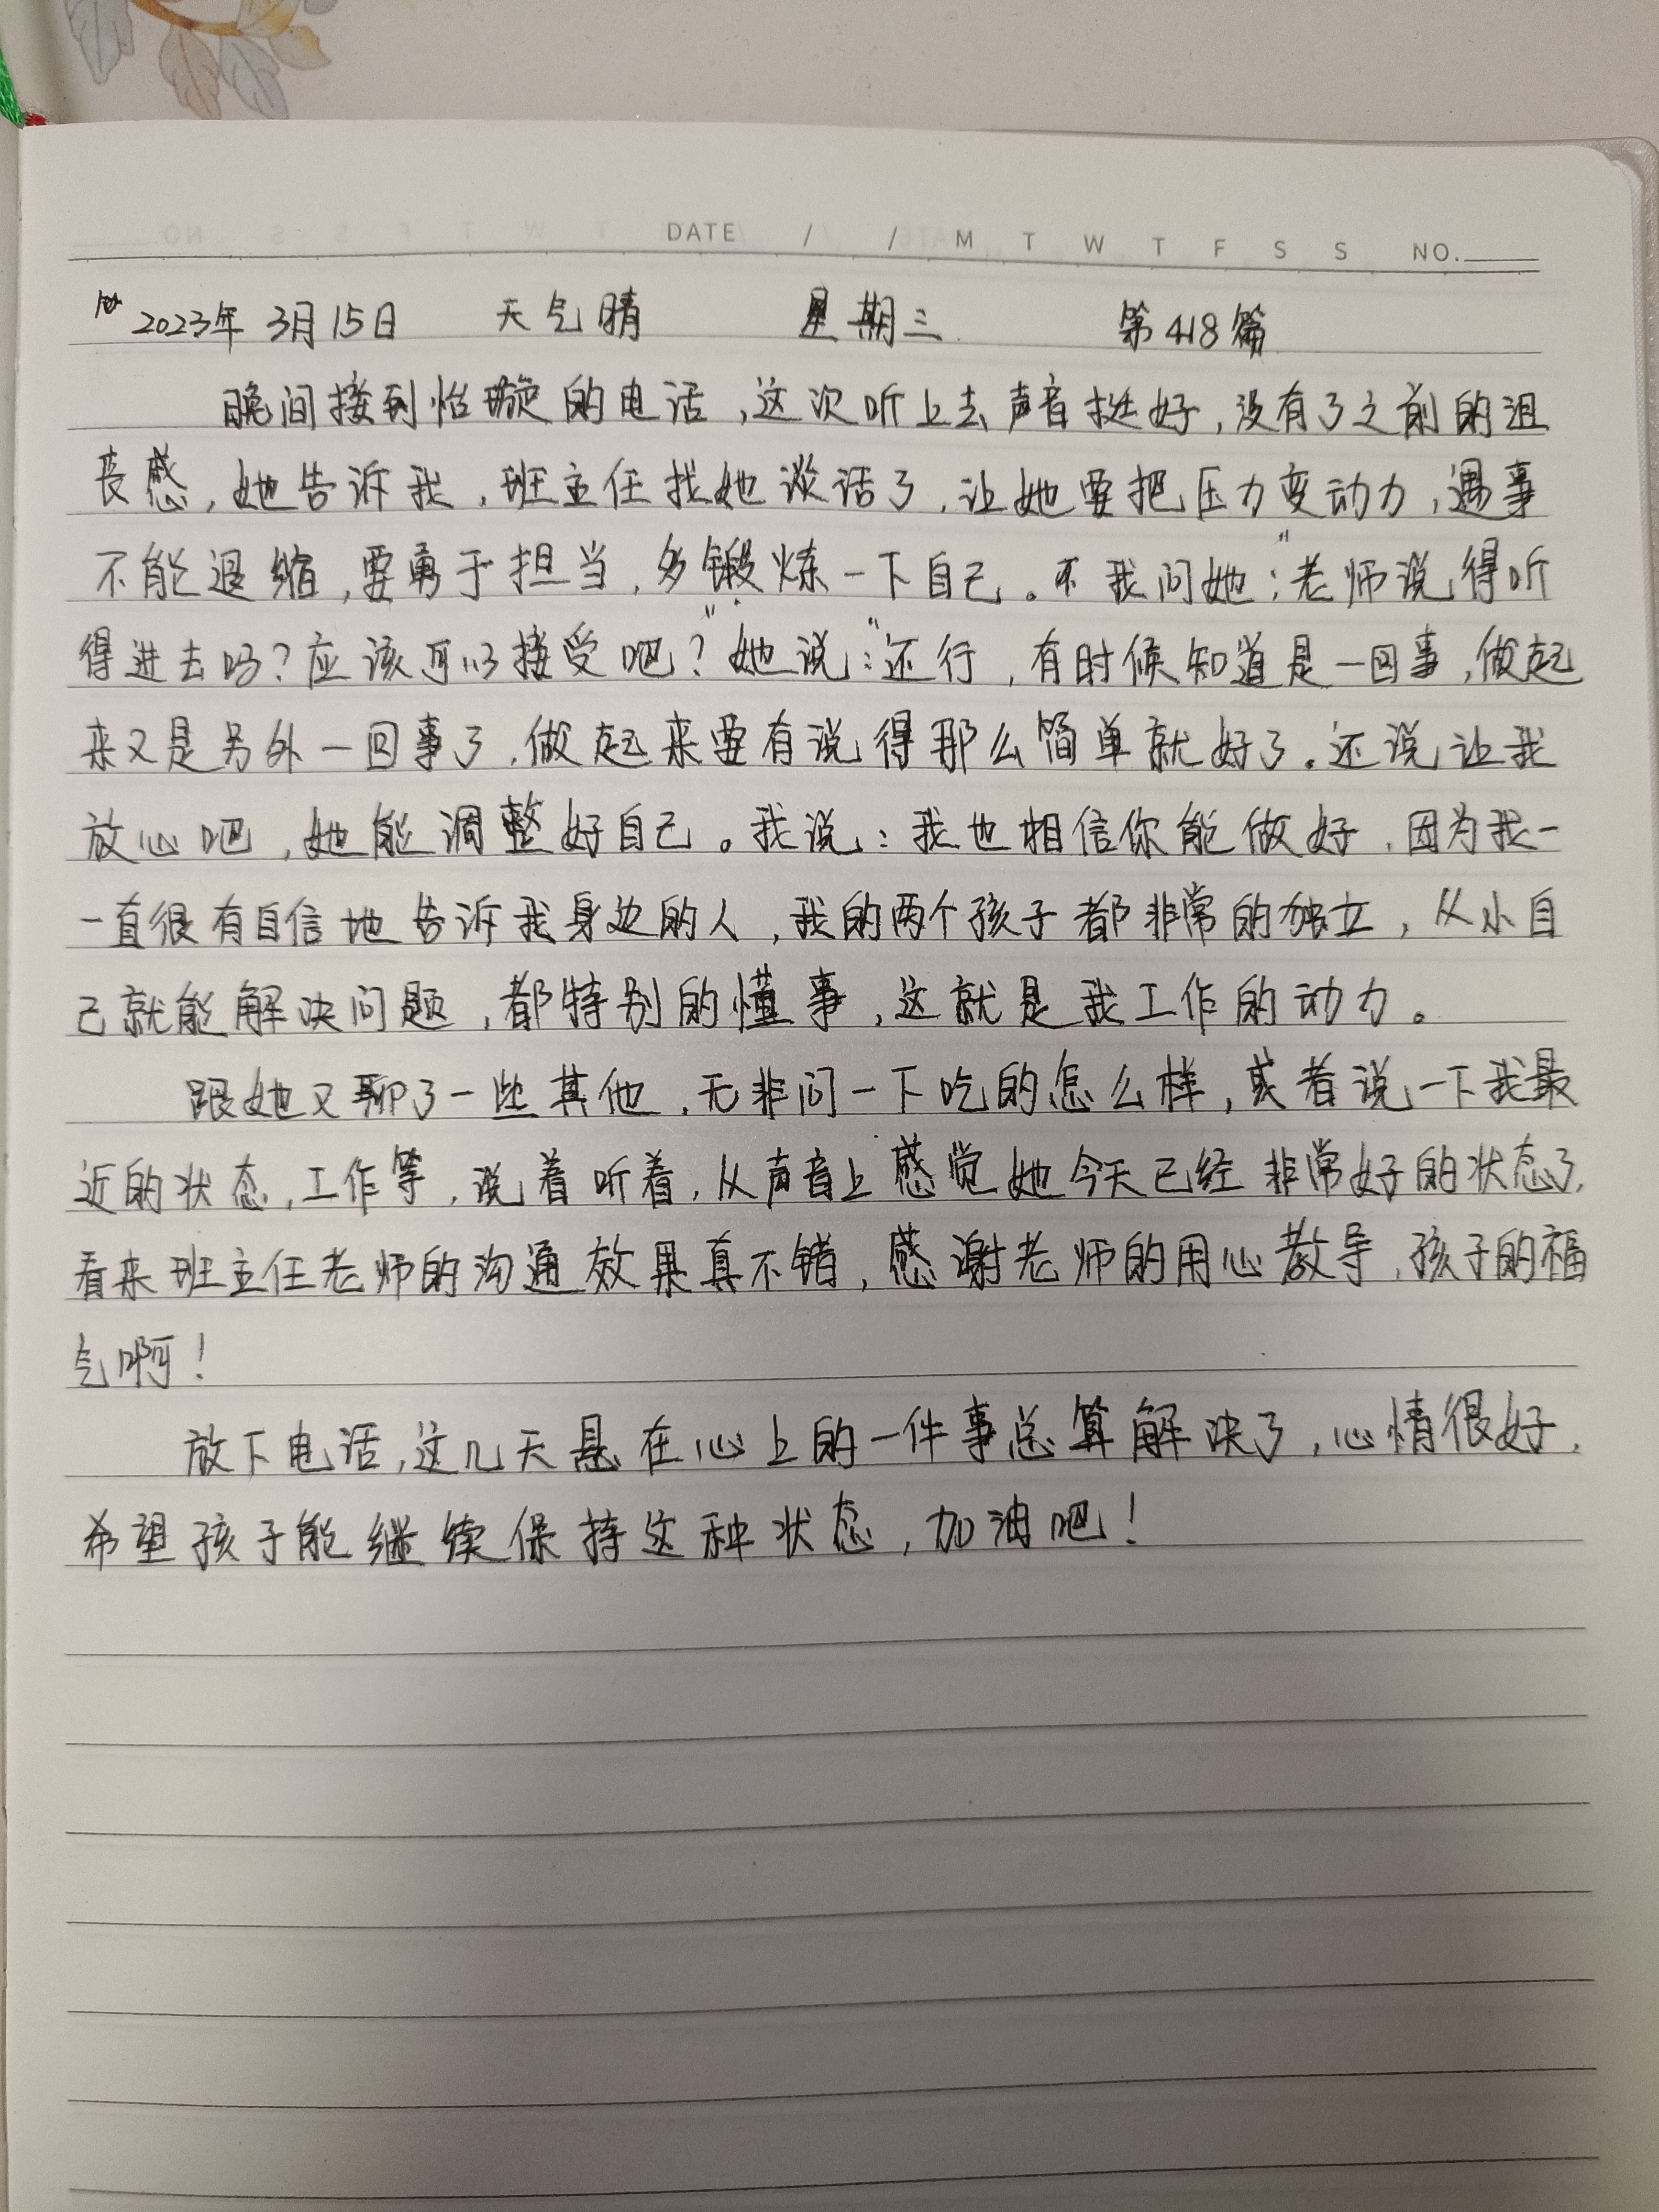 DATE / / M T W T F S S NO.
2023年 3月15日 天气晴 星期三 第418篇
晚间接到怡璇的电话,这次听上去声音挺好,没有了之前的沮
丧感,她告诉我,班主任找她谈话了,让她要把压力变动力,遇事
不能退缩,要勇于担当,多锻炼一下自己。不我问她:"老师说得听
得进去吗?应该可以接受吧?"她说:"还行,有时候知道是一回事,做起
来又是另外一回事了,做起来要有说得那么简单就好了。还说让我
放心吧,她能调整好自己。我说:我也相信你能做好,因为我一
一直很有自信地告诉我身边的人,我的两个孩子都非常的独立,从小自
己就能解决问题,都特别的懂事,这就是我工作的动力。
跟她又聊了一些其他,无非问一下吃的怎么样,或者说一下我最
近的状态,工作等,说着听着,从声音上感觉她今天已经非常好的状态了,
看来班主任老师的沟通效果真不错,感谢老师的用心教导,孩子的福
气啊!
放下电话,这几天悬在心上的一件事总算解决了,心情很好,
希望孩子能继续保持这种状态,加油吧!